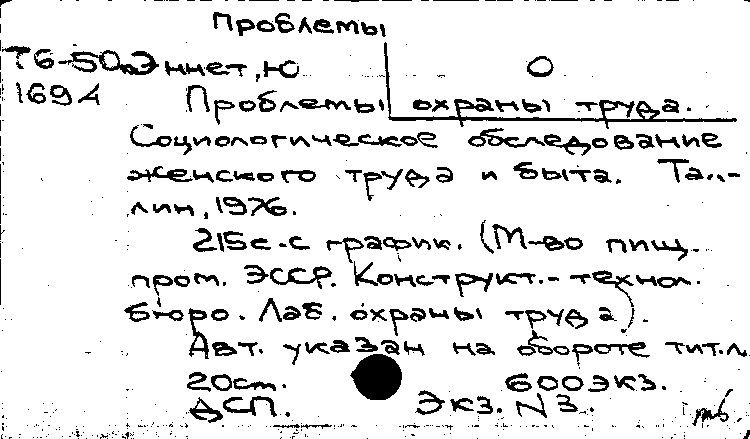 Проблемы
Т6-50 Эннет, Ю О
1694
Проблемы охраны труда.
Социологическое обследование
женского труда и быта. Тал-
лин, 1976.
215с. с график. (М-во пищ.
пром. ЭССР. Конструкт.-технол.
бюро. Лаб. охраны труда).
Авт. указан на обороте тит.л.
20ст. 600экз.
ДСП. Экз. N 3.